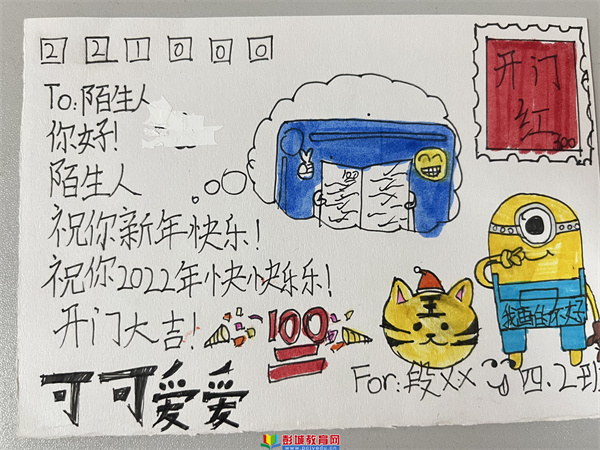 221000
开门
红
300
To:陌生人
你好!
陌生人
祝你新年快乐!
祝你2022年快快乐乐!
开门大吉!
100
100
王
我画的不好
可可爱爱
For:段XX 四.2班
彭城教育网